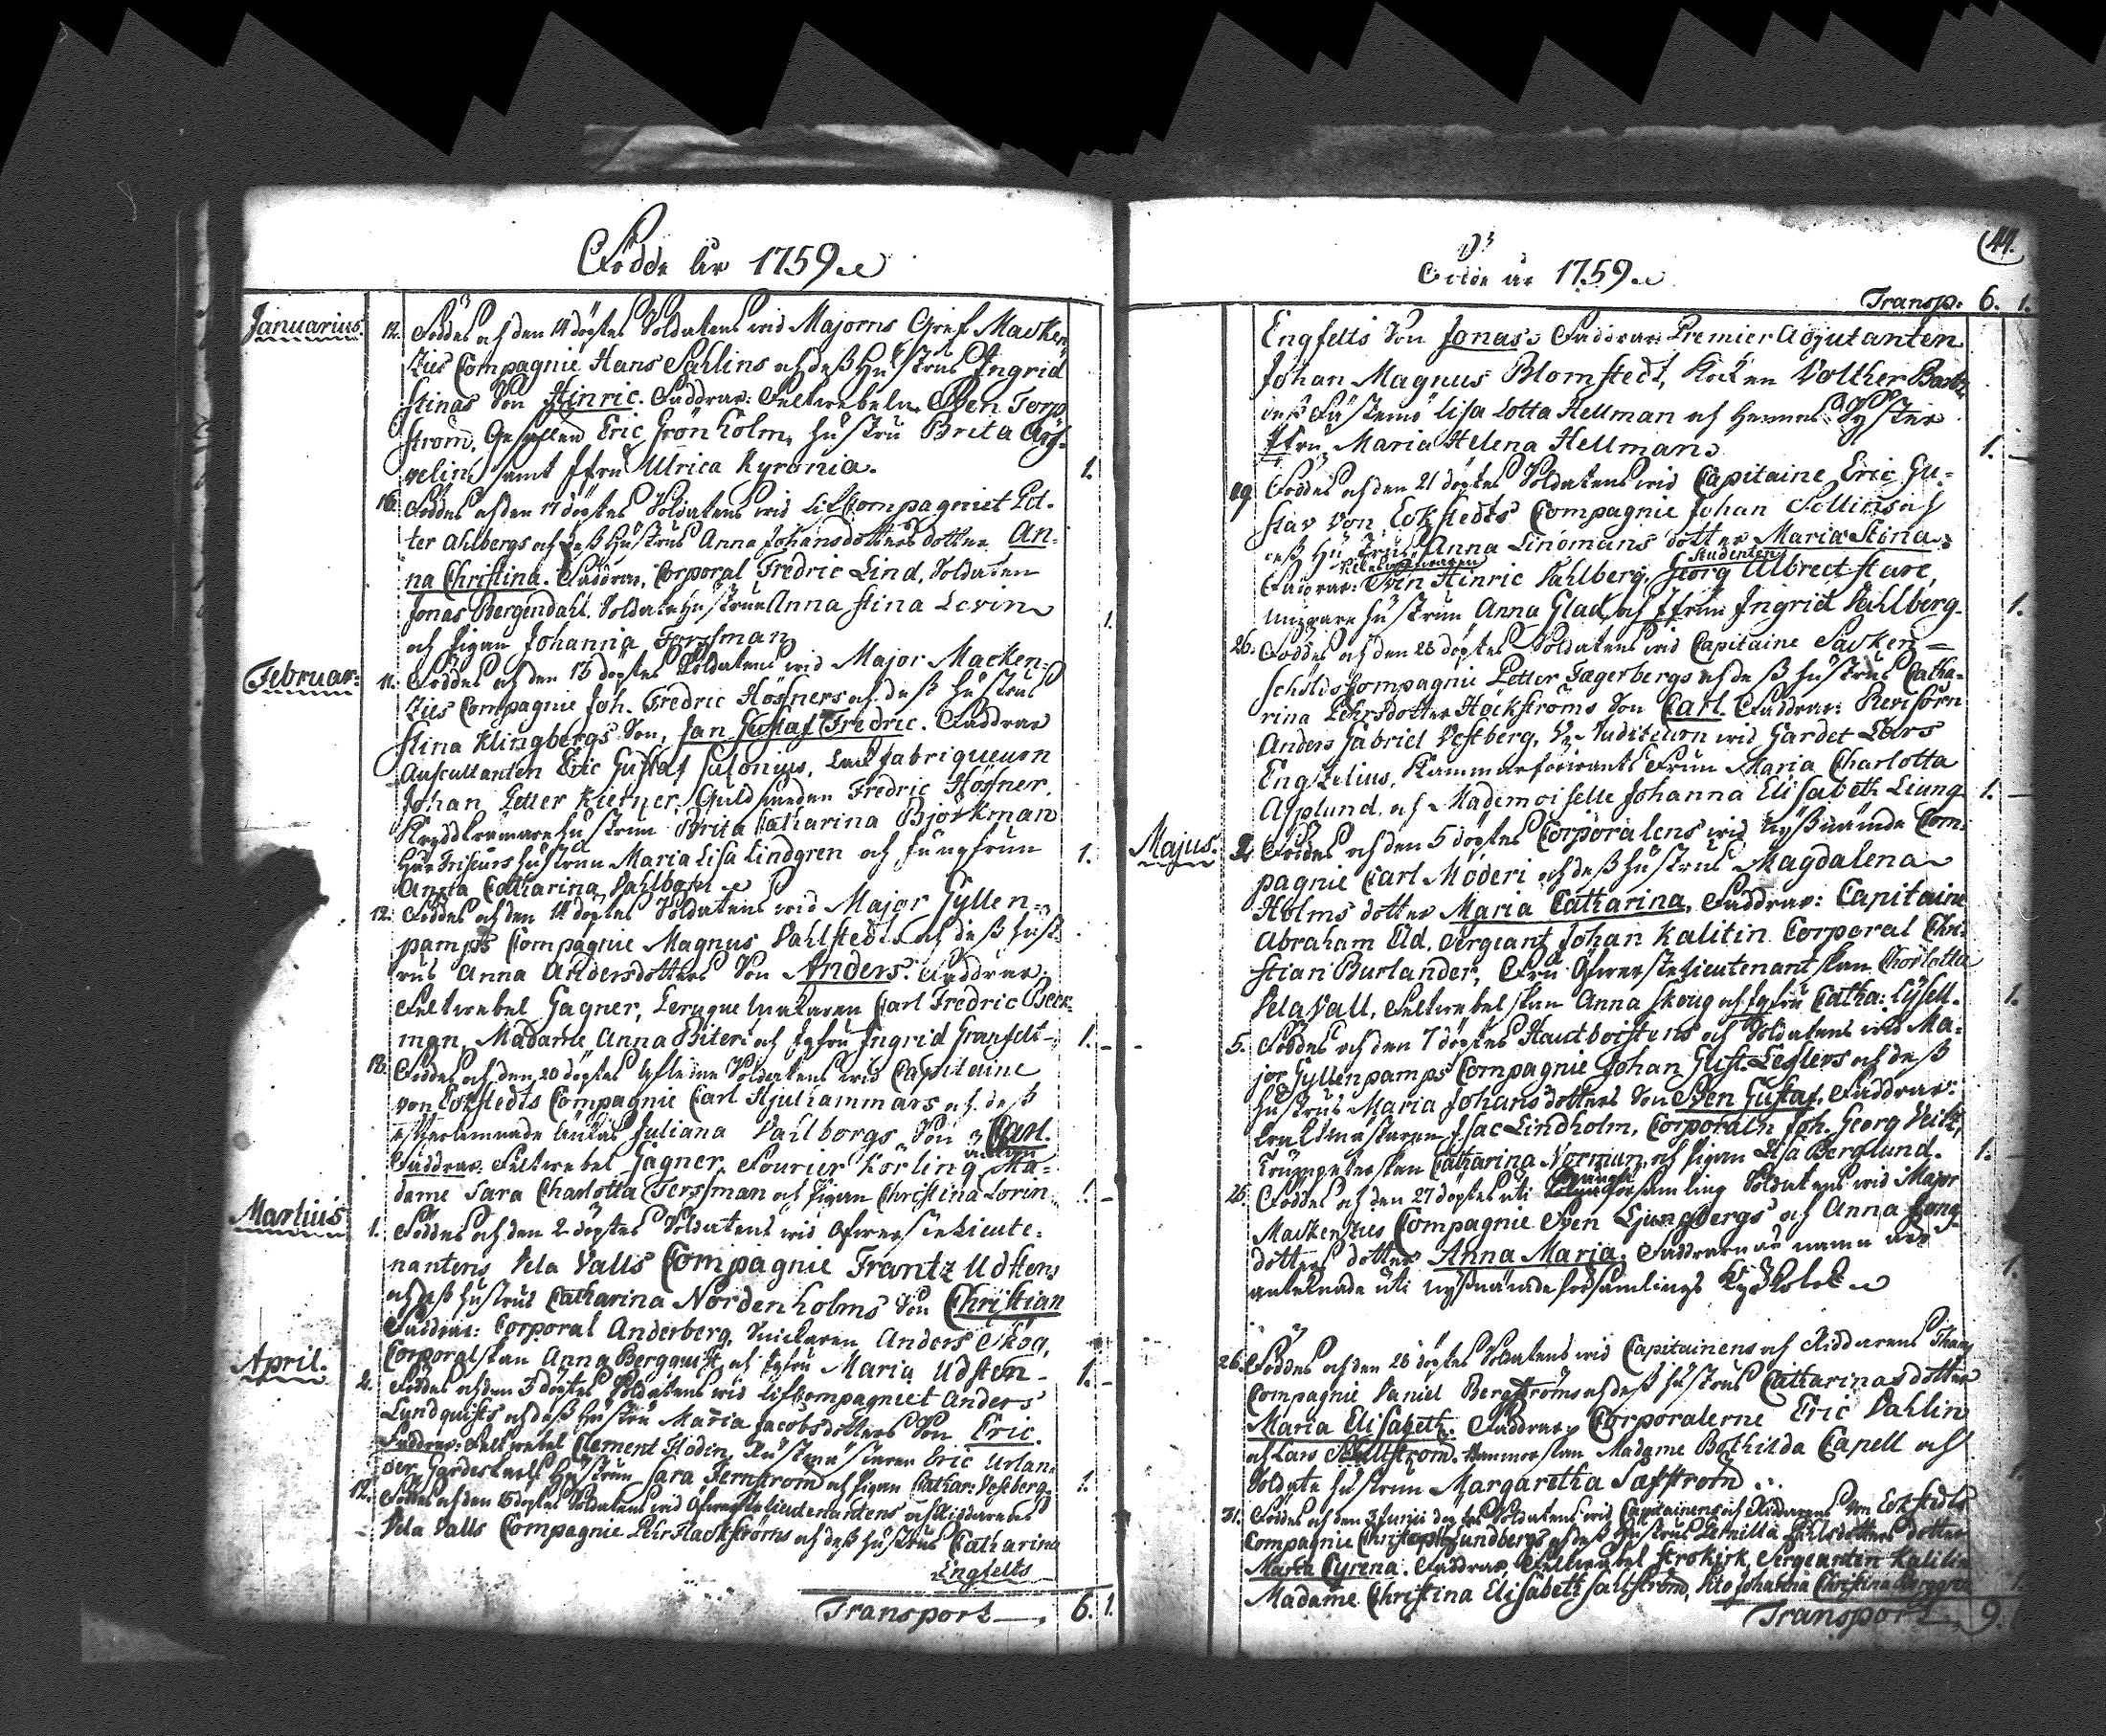 Födde år 1759
Januarius. 12. Föddes och den 14 döptes Soldatens wid Majorns Gref Macken
Zies Compagnie Hans Sahlins och deß Hustrus Ingrid
Stinas Son Hinric. Faddrar: Feltwebeln Sven Torp
ström, Gesällen Eric Grönholm, hustru Brita Arf-
velin, samt Jfru Ulrica Kyronia. 1.
16. Föddes och den 17 döptes Soldatens wid LifCompagniet Pet-
ter Ahlbergs och deß Hustrus Anna Johansdotters dotter An-
na Christina. Faddrar, Corporal Fredric Lind, Soldaten
Jonas Bergendahl. Soldate Hustrun Anna Stina Levin
och Pigan Johanna Forssman 1.
Februar: 11. Föddes och den 13 döptes Soldatens wid Major Macken-
Zies Compagnie Joh. Fredric Höffners och deß Hustrus
Stina Klingbergs Son, Jan Gustaf Fredric. Faddrar
Auscultanten Eric Gustaf Salonius, Lack fabriqueuren
Johan Petter Kierner, Guldsmeden Fredric Höffner,
Kryddkrämare hustrun Brita Catharina Björkman
Hår Friseurs hustrun Maria Lisa Lindgren och Jungfrun
Anna Catharina Dahlbom 1.
12. Föddes och den 14 döptes Soldatens wid Major Gyllen-
pamps Compagnie Magnus Dahlstedts och deß Hust-
rus Anna Andersdotters Son Anders. Faddrar:
Feltwebel Gagner, Peruque makaren Carl Fredric Beck-
man, Madame Anna Biteri och Jgfru Ingrid Granfelt 1.
18. Föddes och den 20 döptes Afledne Soldatens wid Capitaine
von Eckstedts Compagnie Carl Hjulhammars och deß
efterlemnade änkas Juliana Dahlborgs Son Carl.
Faddrar: Feltwebel Gagner, Fourier Körling, Ma-
dame Sara Charlotta Forssman och Pigan Christina Lorin 1.
Martius 1. Föddes och den 2 döptes Soldatens wid Öfwerste Lieute-
nantens Dela Valls Compagnie Frantz Udstens
och deß hustrus Catharina Nordenholms Son Christian
Faddrar: Corporal Anderberg, Snickaren Anders Skog,
Corporalskan Anna Bergquist och Jgfru Maria Udsten 1.
April. 2. Föddes och den 3 döptes Soldatens wid LifCompagniet Anders
Lyndquists och deß Hustru Maria Jacobsdotters Son Eric.
Faddrar: Feltwebel Clement Hodin, Rustmästaren Eric Urlan-
der Gardeskarls Hustrun Sara Fernström och Pigan Cathar: Vestberg. 1.
12. Föddes och den 15 döptes Soldatens wid Öfwerste Lieutenantens och Riddarens
Dela Valls Compagnie Pehr Hackströms och deß Hustrus Catharina
Engfelts
Transport 6. 1.
44.
Födde år 1759
Transp. 6. 1.
Engfelts Son Jonas. Faddrar: Premier Adjutanten
Johan Magnus Blomstedt, Kocken Volther
deß Fästemö Lisa Lotta Hellman och hennes Syster
Jfru Maria Helena Hellman. 1.
19 Föddes och den 21 döptes Soldatens wid Capitaine Eric Gu-
stav von Eckstedts Compagnie Johan Sellins och
deß Hustrus Anna Lindmans dotter Maria Stina.
Studenten
Faddrar: Sven Hinric Dahlberg, Georg Albrect Stare,
Murare hustrun Anna Glad och Jfrun Ingrid Dahlberg. 1.
26. Föddes och den 28 döptes Soldatens wid Capitaine Sacken-
schölds Compagnie Petter Fagerbergs och deß hustrus Catha-
rina Pehrsdotter Höckströms Son Carl. Faddrar: Revisorn
Anders Gabriel Vestberg, V. Auditeuren wid Gardet Lars
Eng Zelius, Kammarförwants Frun Maria Charlotta
Asplund och Mademoiselle Johanna Elisabeth Liung 1.
Majus. 2 Föddes och den 5 döptes Corporalens wid nyßnämde Com-
pagnie Carl Möderi och deß hustrus Magdalena
Holms dotter Maria Catharina, Faddrar: Capitaine
Abraham Eld, Sergeant Johan Kalitin Corporal Chri-
stian Burlander, Fru Öfwerste Lieutenantskan Charlotta
Dela Vall, Feltwebelskan Anna Skoug och Jgfru Catha: Lysell. 1.
5. Föddes och den 7 döptes Hautboistens och Soldatens wid Ma-
jor Gyllenpamps Compagnie Johan Gust. Leflers och deß
hustrus Maria Johansdotters Son Sven Gustaf. Faddrar:
Isac Lindholm, Corporaln Joh. Georg Veitt,
Trumpeterskan Catharina Norman och Pigan Lisa Berglund. 1.
25. Föddes och den 27 döptes uti församling Soldatens wid Major
MackenZies Compagnie Sven Ljungbergs och Anna Jons-
dotters dotter Anna Maria. Faddrarnas namn äro
antecknade uti nyßnämde församlings Kyrkobok 1.
26. Föddes och den 28 döptes Soldatens wid Capitainens och Riddarens
Compagnie Daniel Bergströms och deß hustrus Cattarinas dotter
Maria Elisabeth. Faddrar, Corporalerne Eric Dahlin
och Lars Madame Bothilda Capell och
Soldate hustrun Margaretha Säfström. 1.
31. Föddes och den 3 Junii döptes Soldatens wid Capitainens och Riddarens von Eckstedts
Compagnie Christoph Lundbergs och deß hustrus Pernilla Nilsdotters dotter
Maria Cyrena. Faddrar, Feltwebel Strokirk, Sergeanten Kalitin
Madame Christina Elisabeth Saltström, Dito Johanna Christina Berggren 1.
Transport 9.